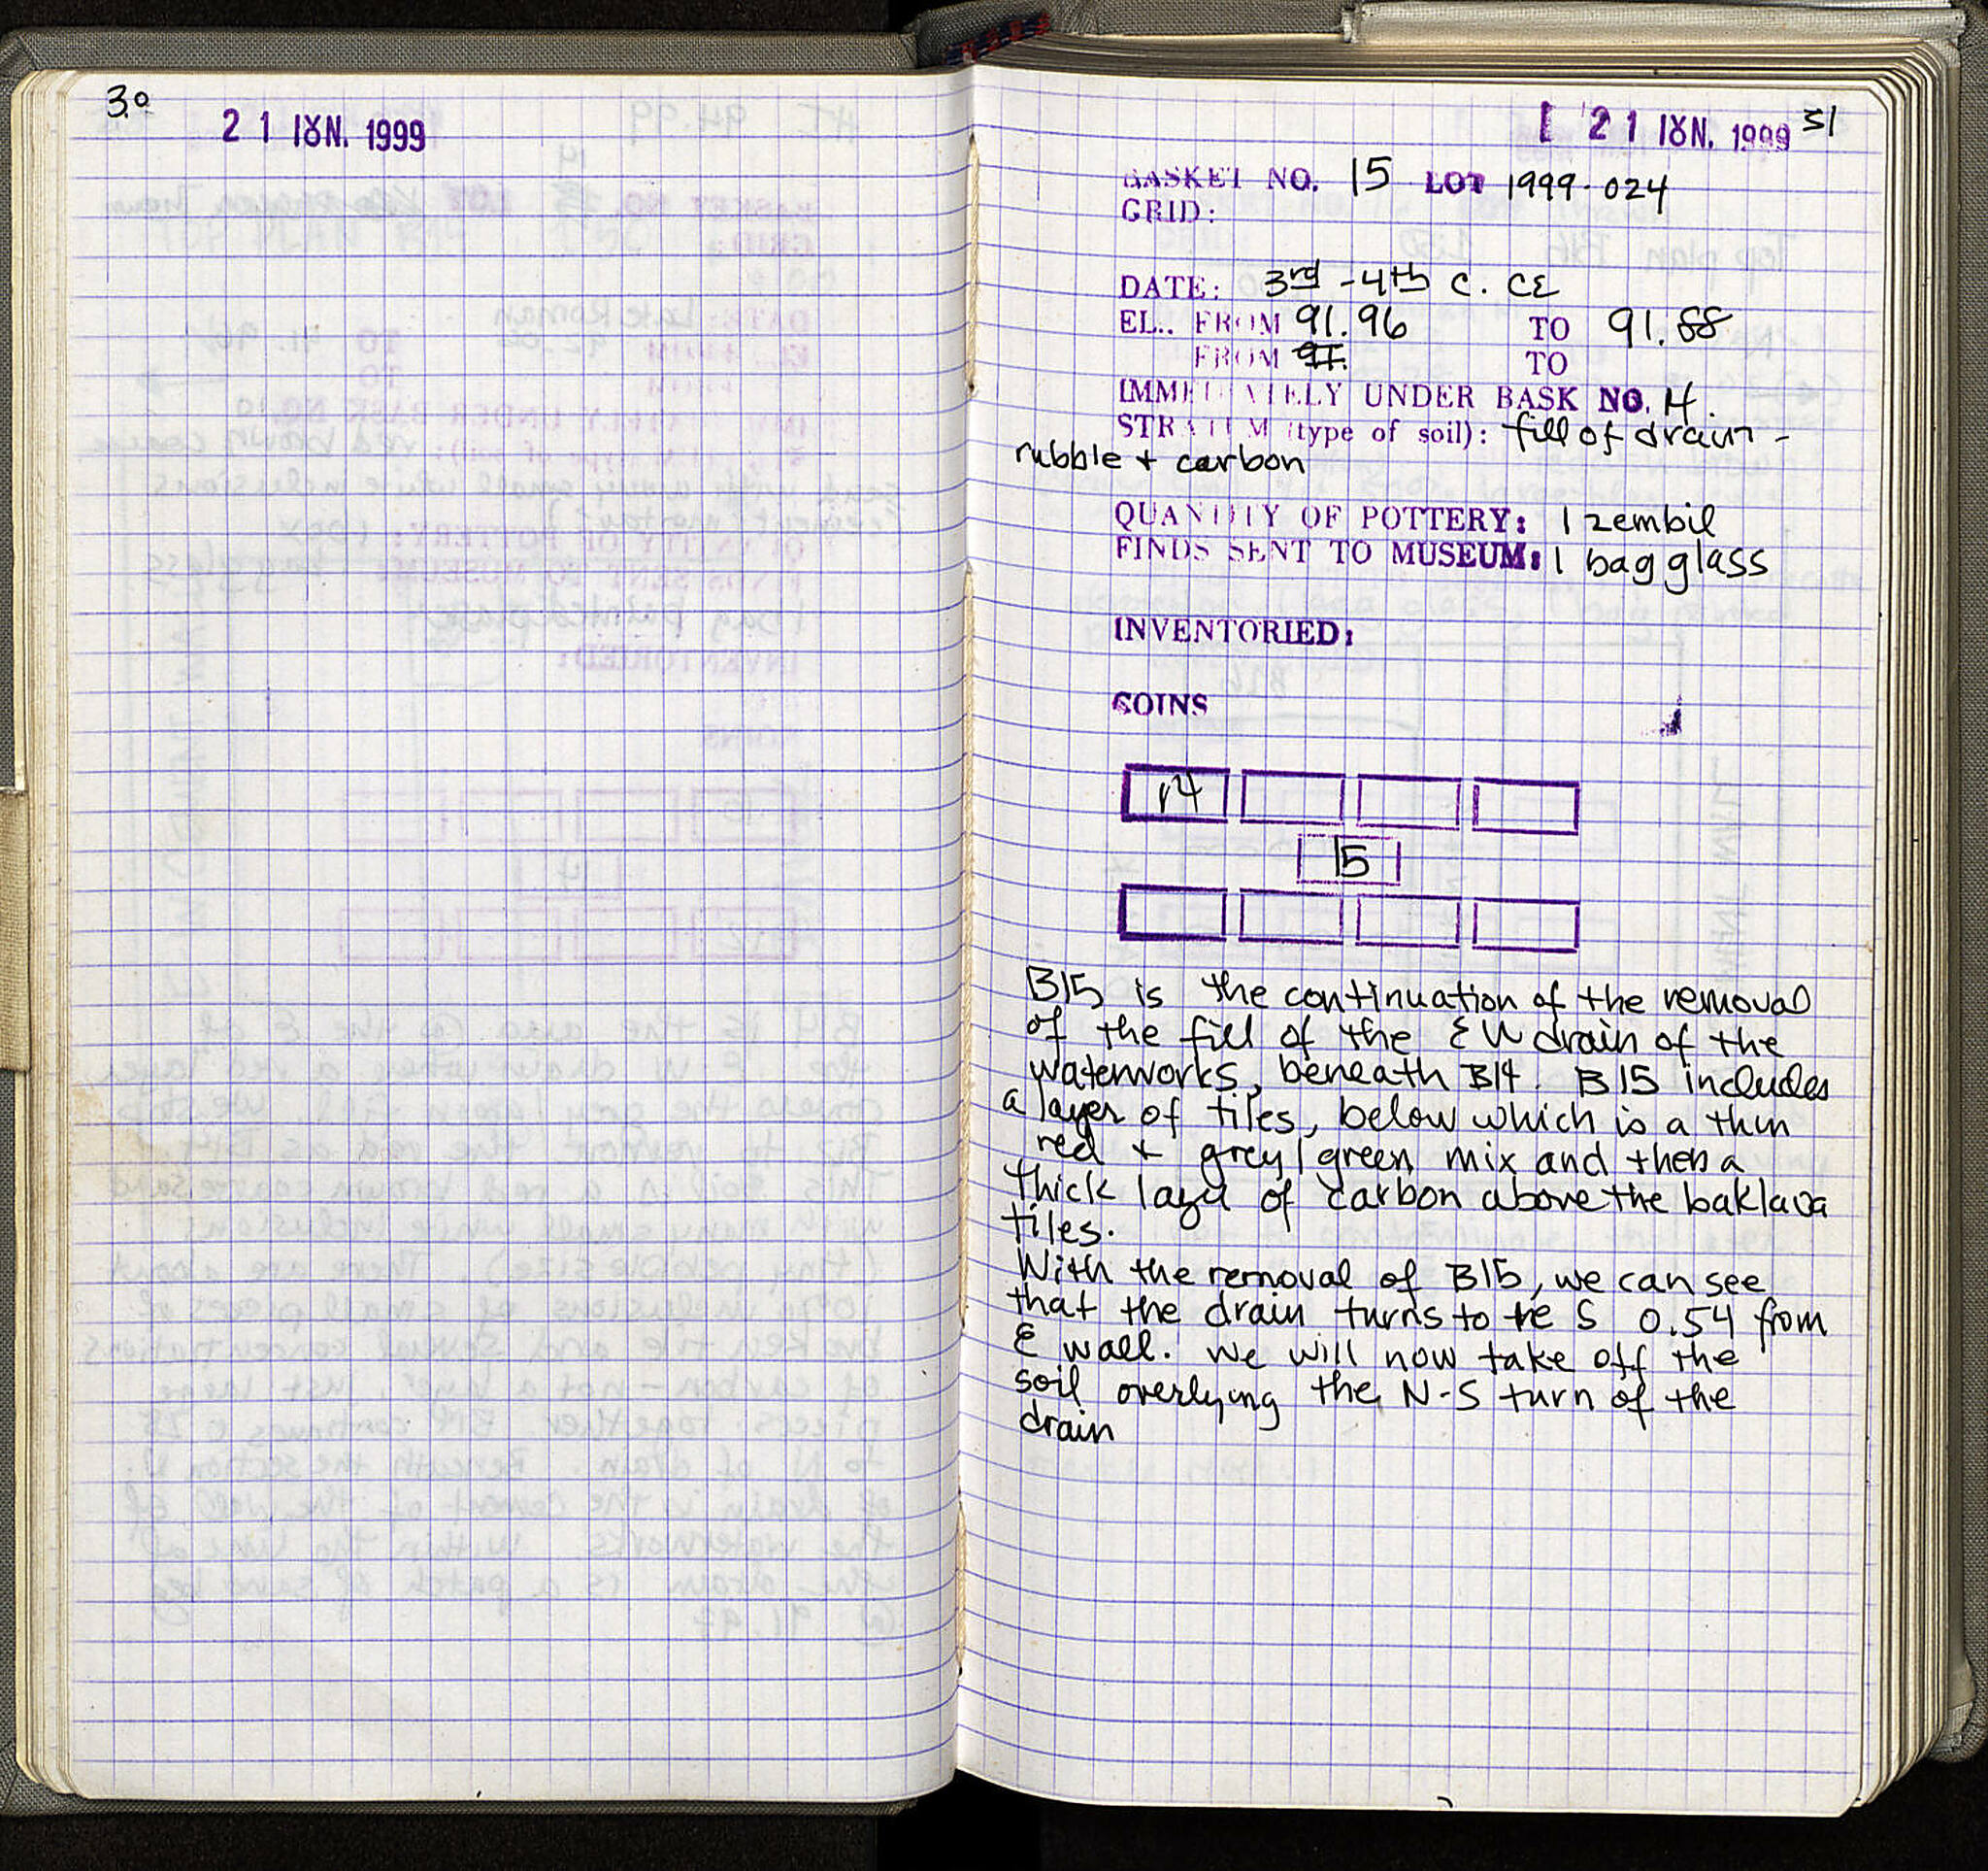 30
21 ΙΟΥΝ. 1999
21 ΙΟΥΝ. 1999 31
BASKET NO. 15 LOT 1999-024
GRID:
DATE: 3rd - 4th C. CE
EL.. FROM 91.96 TO 91.88
FROM 91. TO
IMMEDIATELY UNDER BASK NO. 14.
STRATUM (type of soil): fill of drain -
rubble + carbon
QUANTITY OF POTTERY: 1 zembil
FINDS SENT TO MUSEUM: 1 bag glass
INVENTORIED:
COINS
14
15
B15 is the continuation of the removal
of the fill of the EW drain of the
waterworks, beneath B14. B15 includes
a layer of tiles, below which is a thin
red + grey/green mix and then a
thick layer of carbon above the baklava
tiles.
With the removal of B15, we can see
that the drain turns to the S 0.54 from
E wall. We will now take off the
soil overlying the N-S turn of the
drain